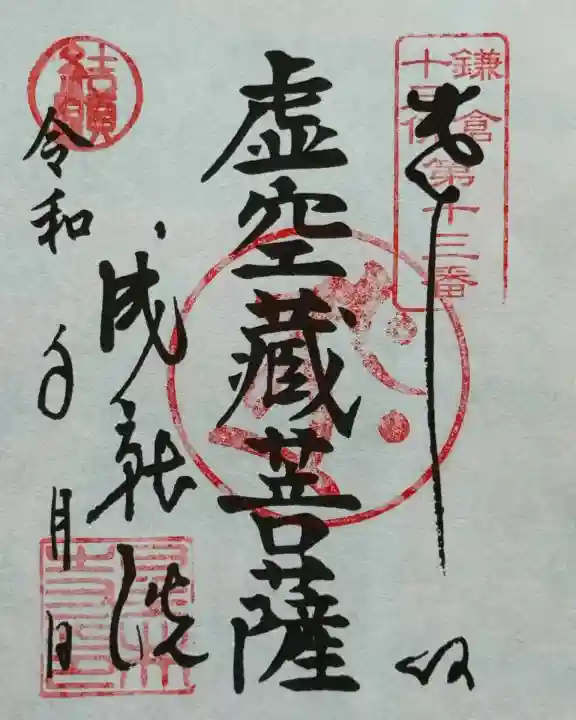 鎌倉
十三佛第十三番
奉拝
虚空藏菩薩
結願
成就院
令和 年 月 日